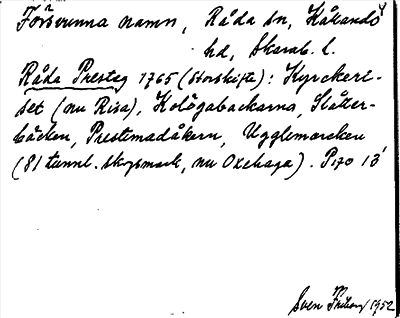 Försvunna namn, Råda sn, Kållands
hd, Skarab. l.
Råda Prestg 1765 (storskifte): Kyrckeri-
set (nu Risa), Kologabackarna, Slåtter-
bäcken, Prestemadåkern, Ugglemarcken
(81 tunnl. skogsmark, nu Oxehaga). P170 13
Sven 1952